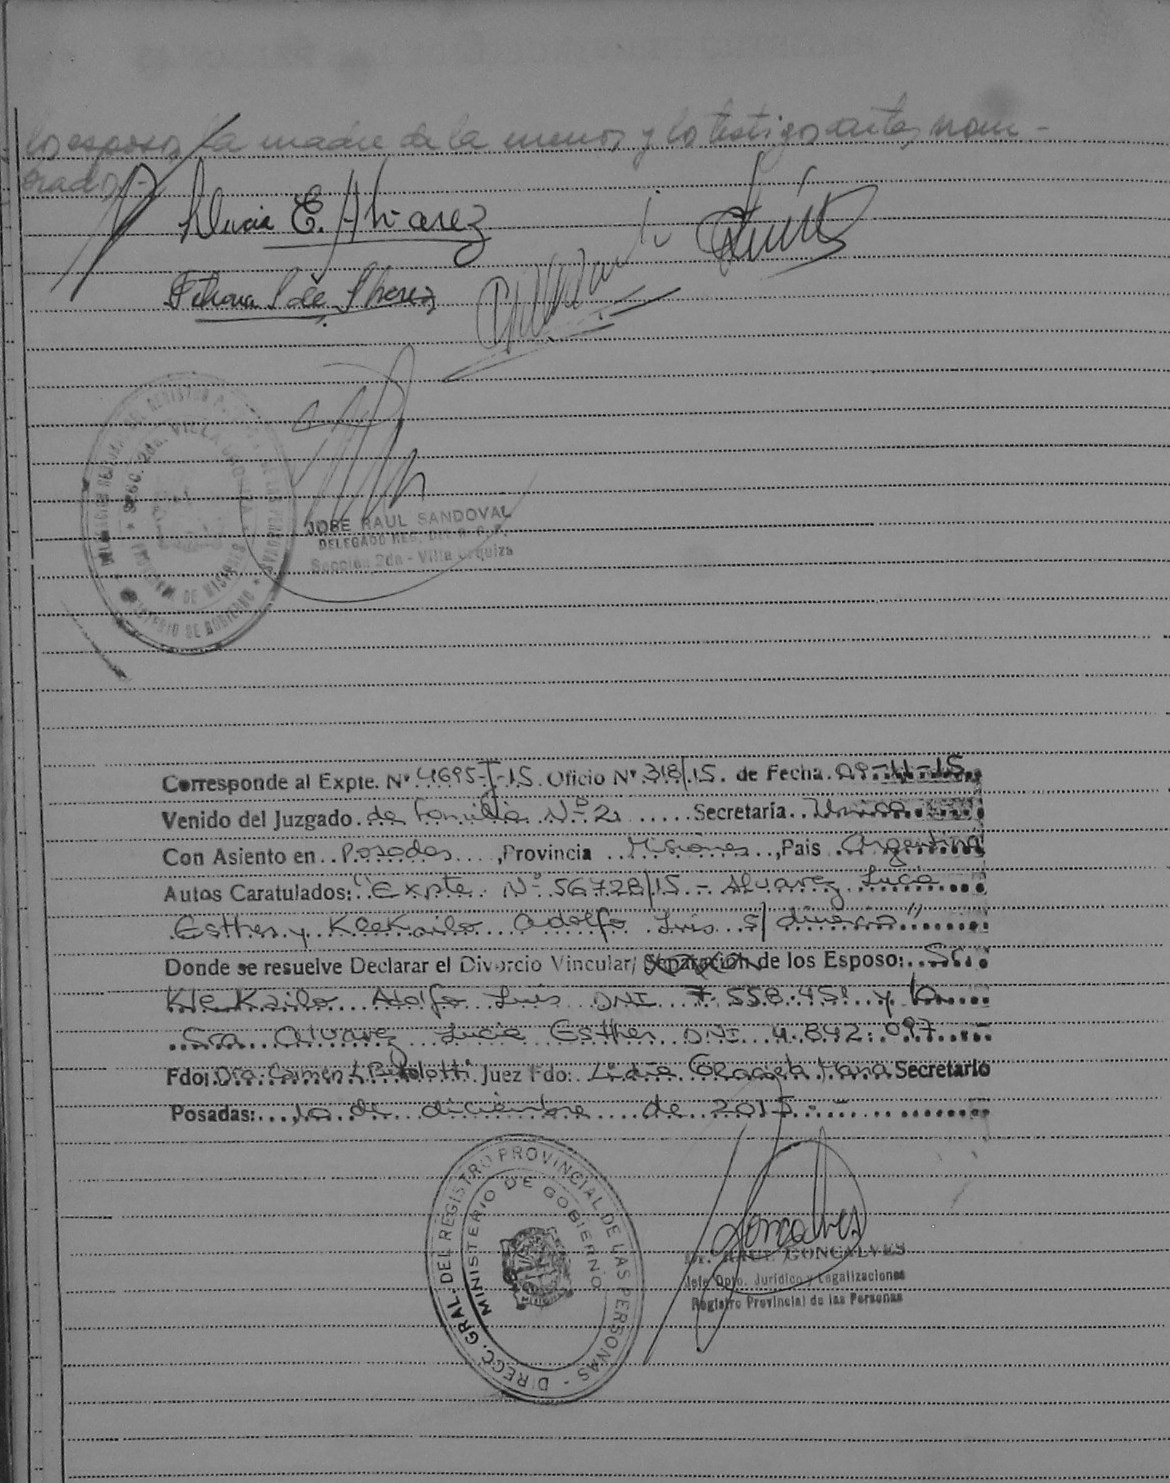 los esposos, la madre de la menor, y los testigos antes nom-
brados.-
Lucia E. Alvarez
de
JOSE RAUL SANDOVAL
DELEGADO REG.
Sección 2da - Villa Urquiza
SECC. 2da. VILLA URQUIZA
PROVINCIA DE MISIONES
MINISTERIO DE GOBIERNO
Corresponde al Expte. Nº 4695-J-15. Oficio Nº 318/15. de Fecha 09-11-15
Venido del Juzgado de Familia Nº 2 Secretaría Unica
Con Asiento en Posadas, Provincia Misiones, Pais Argentina
Autos Caratulados: "Expte. Nº 56728/15.- Alvarez Lucia
Esther y Klekailo Adolfo Luis s/ divorcio"
Donde se resuelve Declarar el Divorcio Vincular/ Separación de los Esposo: Sr.
Klekailo Adolfo Luis DNI 7.558.451 y la
Sra Alvarez Lucia Esther DNI 4.842.097
Fdo: Dra. Carmen Juez Fdo: Lidia Graciela Secretario
Posadas: 10 de diciembre de 2015.-
DIRECC. GRAL. DEL REGISTRO PROVINCIAL DE LAS PERSONAS -
MINISTERIO DE GOBIERNO
Goncalves
Dr. RAUL GONCALVES
Jefe Dpto. Jurídico y Legalizaciones
Registro Provincial de las Personas